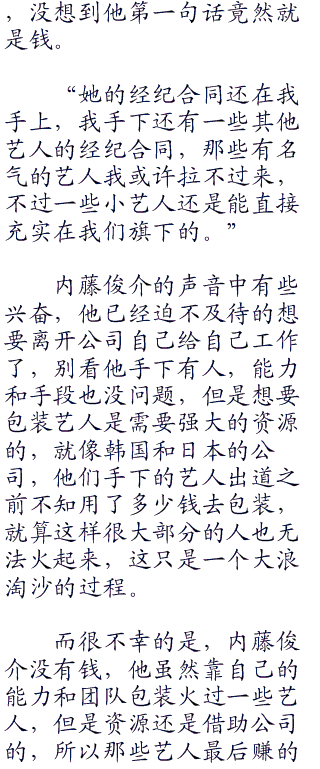 ，没想到他第一句话竟然就
是钱。
“她的经纪合同还在我
手上，我手下还有一些其他
艺人的经纪合同，那些有名
气的艺人我或许拉不过来，
不过一些小艺人还是能直接
充实在我们旗下的。”
内藤俊介的声音中有些
兴奋，他已经迫不及待的想
要离开公司自己给自己工作
了，别看他手下有人，能力
和手段也没问题，但是想要
包装艺人是需要强大的资源
的，就像韩国和日本的公
司，他们手下的艺人出道之
前不知用了多少钱去包装，
就算这样很大部分的人也无
法火起来，这只是一个大浪
淘沙的过程。
而很不幸的是，内藤俊
介没有钱，他虽然靠自己的
能力和团队包装火过一些艺
人，但是资源还是借助公司
的，所以那些艺人最后赚的